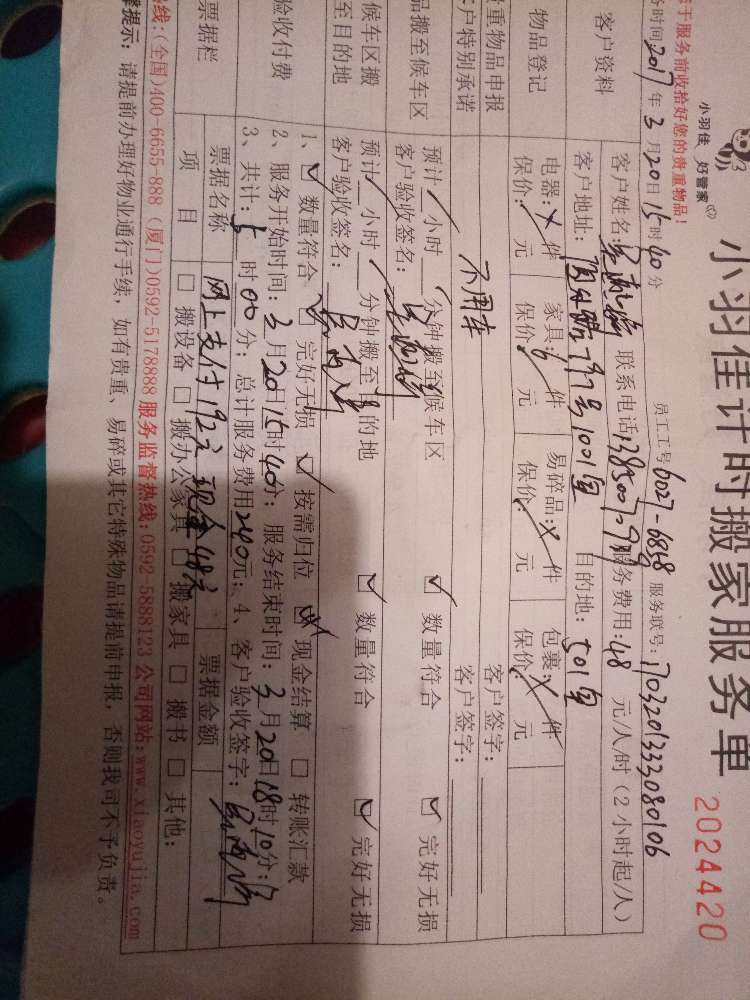 小羽佳计时搬家服务单
2024420
小羽佳 好管家
于服务前收拾好您的贵重物品!
员工工号6027-6868 服务联号:1703201333080106
时间2017年3月20日15时40分
客户资料
客户姓名: 联系电话 服务费用:48 元/人/时(2小时起/人)
客户地址: 797号1001室 目的地:501室
物品登记
电器: 件 家具:6件 易碎品: 件 包裹: 件
保价: 元 保价: 元 保价: 元 保价: 元
重物品申报 客户签字:
户特别承诺 不用车 客户签字:
品搬至候车区
预计 小时 分钟搬至候车区 数量符合 完好无损
客户验收签名:
候车区搬
至目的地
预计 小时 分钟搬至目的地 数量符合 完好无损
客户验收签名:
验收付费
1、 数量符合 完好无损 按需归位 现金结算 转账汇款
2、服务开始时间:3月20日15时40分;服务结束时间:3月20日18时10分;
3、共计:5时00分;总计服务费用240元;4、客户验收签字:
票据栏
票据名称 网上支付192元 现金48元 票据金额
项目 搬设备 搬办公家具 搬家具 搬书 其他:
线:(全国)400-6655-888 (厦门)0592-5178888 服务监督热线:0592-5888123 公司网站:www.xiaoyujia.com
提示:请提前办理好物业通行手续,如有贵重、易碎或其它特殊物品请提前申报,否则我司不予负责。